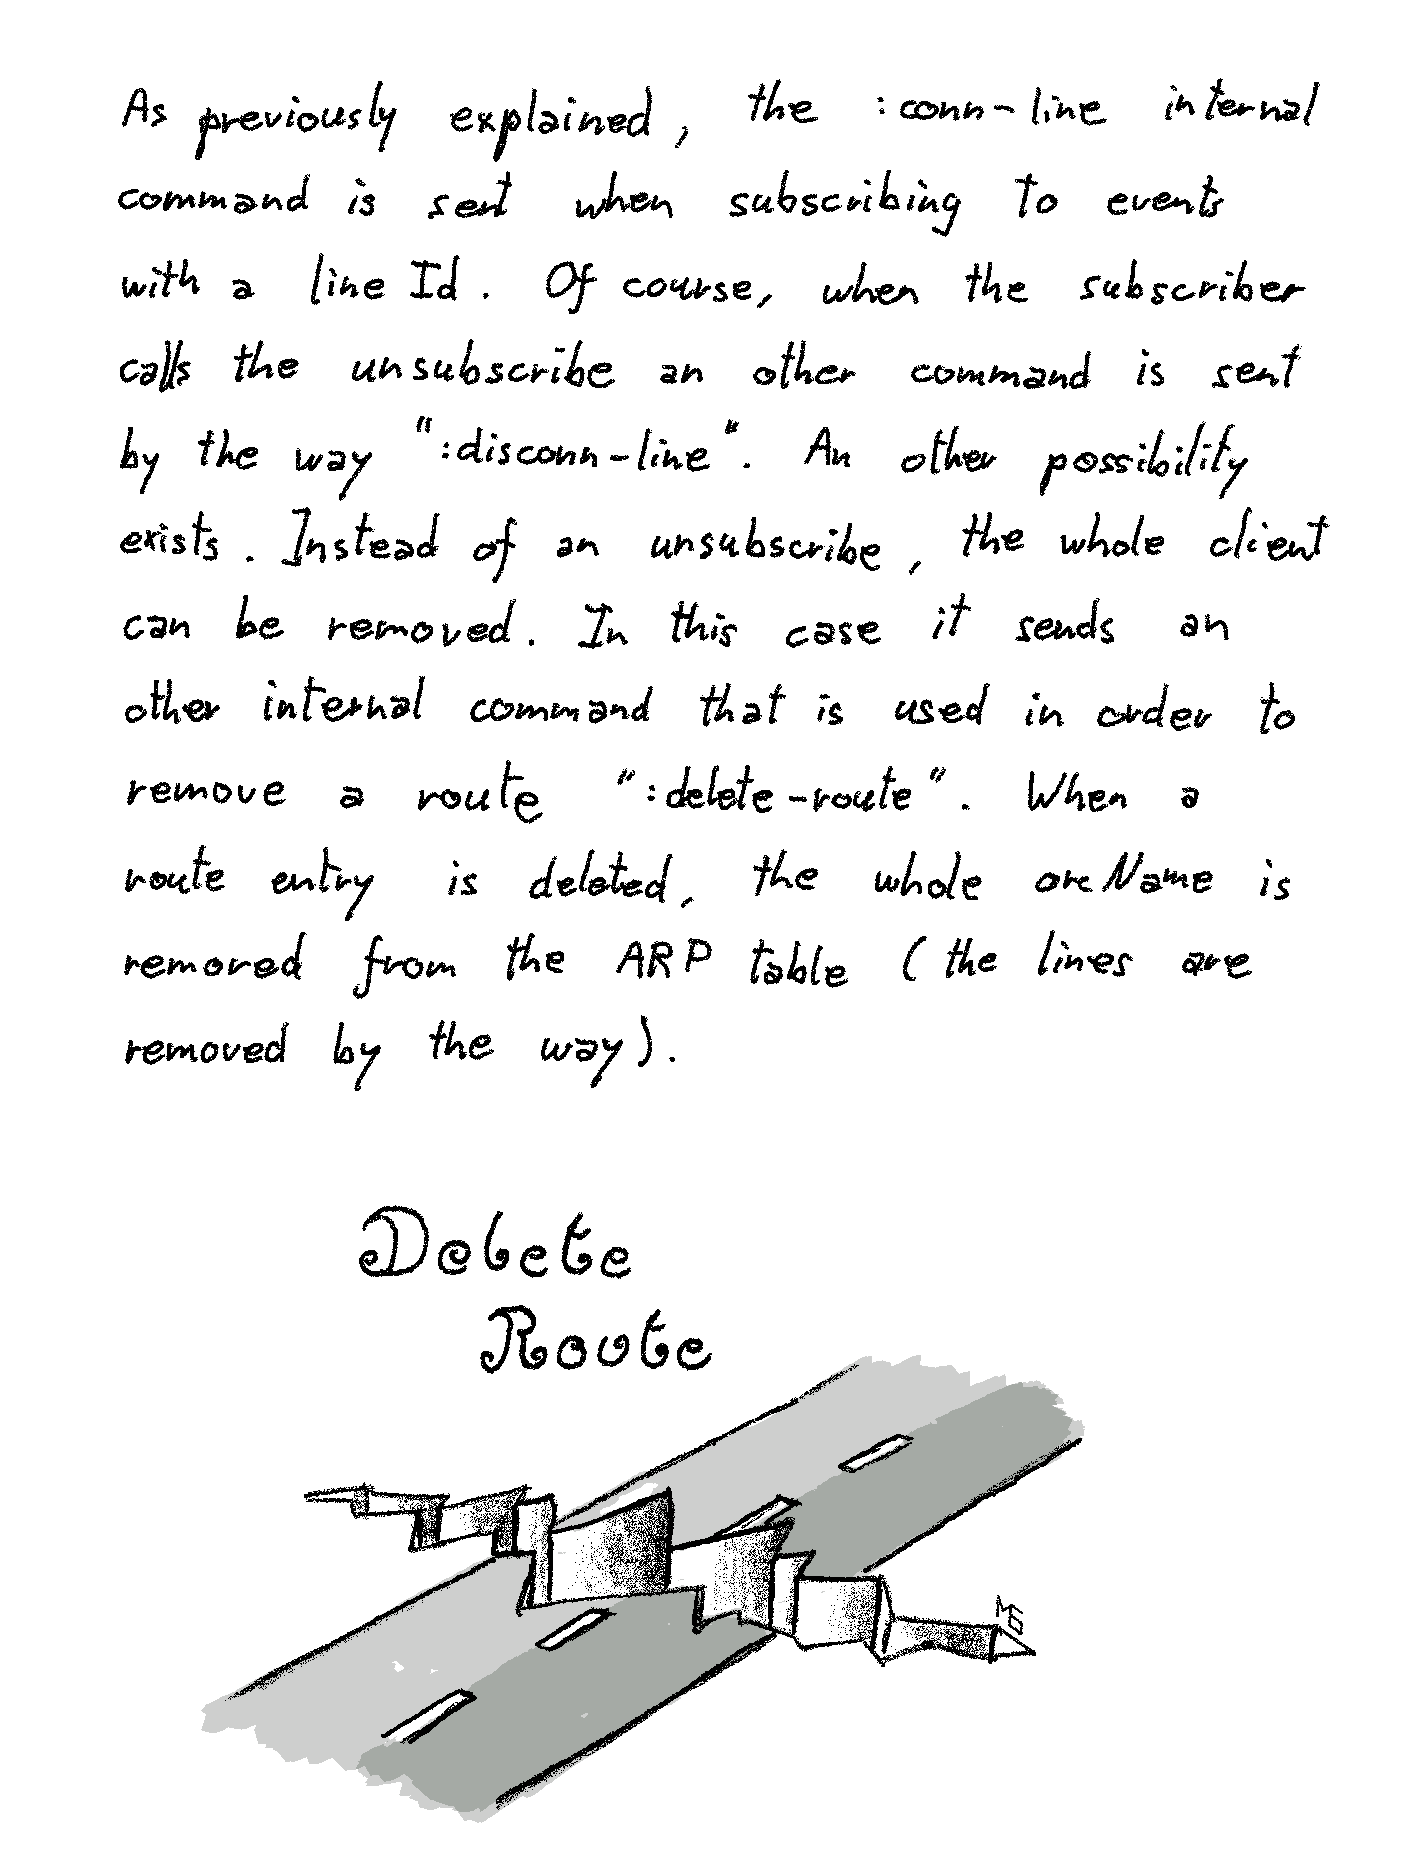 As previously explained, the :conn-line internal
command is sent when subscribing to events
with a line Id. Of course, when the subscriber
calls the unsubscribe an other command is sent
by the way ":disconn-line". An other possibility
exists. Instead of an unsubscribe, the whole client
can be removed. In this case it sends an
other internal command that is used in order to
remove a route ":delete-route". When a
route entry is deleted, the whole orcName is
removed from the ARP table (the lines are
removed by the way).
Delete
Route
MG